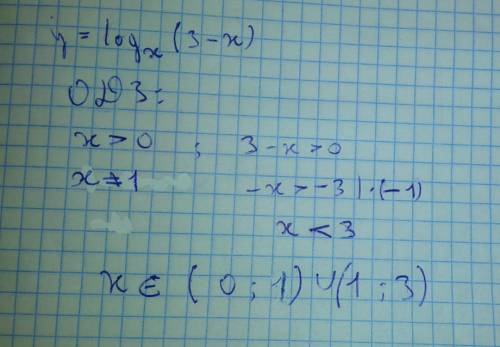 y = log_x (3 - x)
ОДЗ:
x > 0 ; 3 - x > 0
x ≠ 1 -x > -3 | · (-1)
x < 3
x ∈ (0 ; 1) ∪ (1 ; 3)